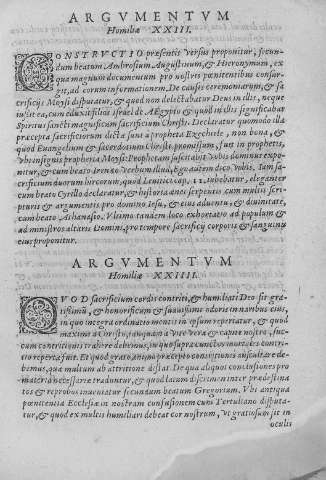 ARGVMENTVM
Homiliæ XXIII.
CONSTRVCTIO præsentis versus proponitur, secun-
dum beatum Ambrosium, Augustinum, & Hieronymum, ex
qua magnum documentum pro nostris pœnitentibus consur-
git, ad eorum informationem. De causis ceremoniarum, & sa-
crificijs Moysi disputatur, & quod non delectabatur Deus in illis, neque
iussit ea, cum eduxit filios Israel de AEgypto & quid in illis significabat
Spiritus sanctus magnificum sacrificium Christi. Declaratur quomodo illa
præcepta sacrificiorum dicta sunt à propheta Ezechiele, non bona, &
quod Euangelium & sacerdotium Christi promissum, sunt in prophetis,
vbi insignis propheria Moysi: Prophetam suscitabit vobis dominus expo-
nitur, & cum beato Irenæo verbum illud, Ego autem dico vobis. Tum sa-
crificium duorum hircorum, quod Leuitico cap. 12. iubebatur, eleganter
cum beato Cyrillo declaratur, & historia ænei serpentis cum multis scri-
pturis & argumentis pro domino Iesu, & eius aduentu, & diuinitate,
cum beato Athanasio. Vltimo tandem loco exhortatio ad populum &
ad ministros altaris Domini, pro tempore sacrificij corporis & sanguinis
eius proponitur.
ARGVMENTVM
Homiliæ XXIIII.
QVOD sacrificium cordis contriti, & humiliati Deo sit gra-
tissimum, & honorificum & suauissimi odoris in naribus eius,
in quo integra ordinatio mentis in ipsum repertatur, & quod
maximum à Christo, tanquam à vite vera & carne nostra, suc-
cum contritionis trahere debemus, in quo supra cunctos mortales contri-
tio reperta fuit. Et quod gratio animo præcepto contritionis auscultare de-
bemus, qua multum ab attritione distat. De qua aliqui conclusiones pro
materia necessariæ traduntur, & quod latum discrimen inter prædestina
tos & reprobos inueniatur secundum beatum Gregorium. Vbi antiqua
pœnitentia Ecclesiæ in nostram confusionem cum Tertuliano disputa-
tur, & quod ex multis humiliari debeat cor nostrum, vt gratiosum sit in
oculis